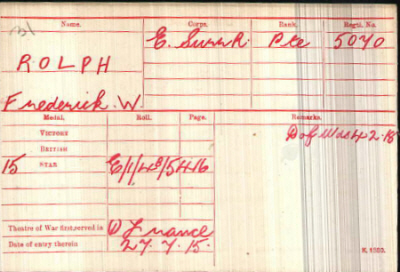 Name. Corps. Rank. Regtl. No.
ROLPH E. Surr R. Pte 5070
Frederick. W.
Medal. Roll. Page. Remarks.
Victory
British
15 Star
Theatre of War first served in () France
Date of entry therein 27. 7. 15.
K. 1380.